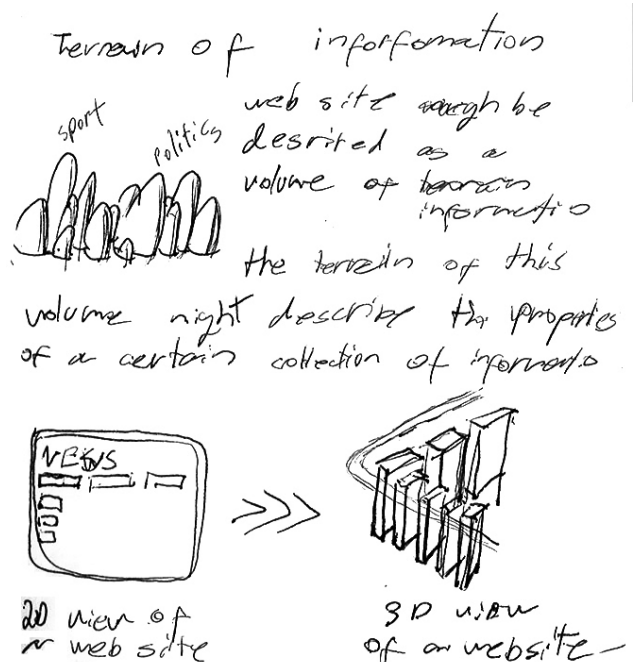 Terrain of inforfomation
sport
politics
web site might be
desrited as a
volume of
informatio
the terrain of this
volume night describe the properties
of a certain collection of informatio
NEWS
2D view of
a web site
3D view
of a website